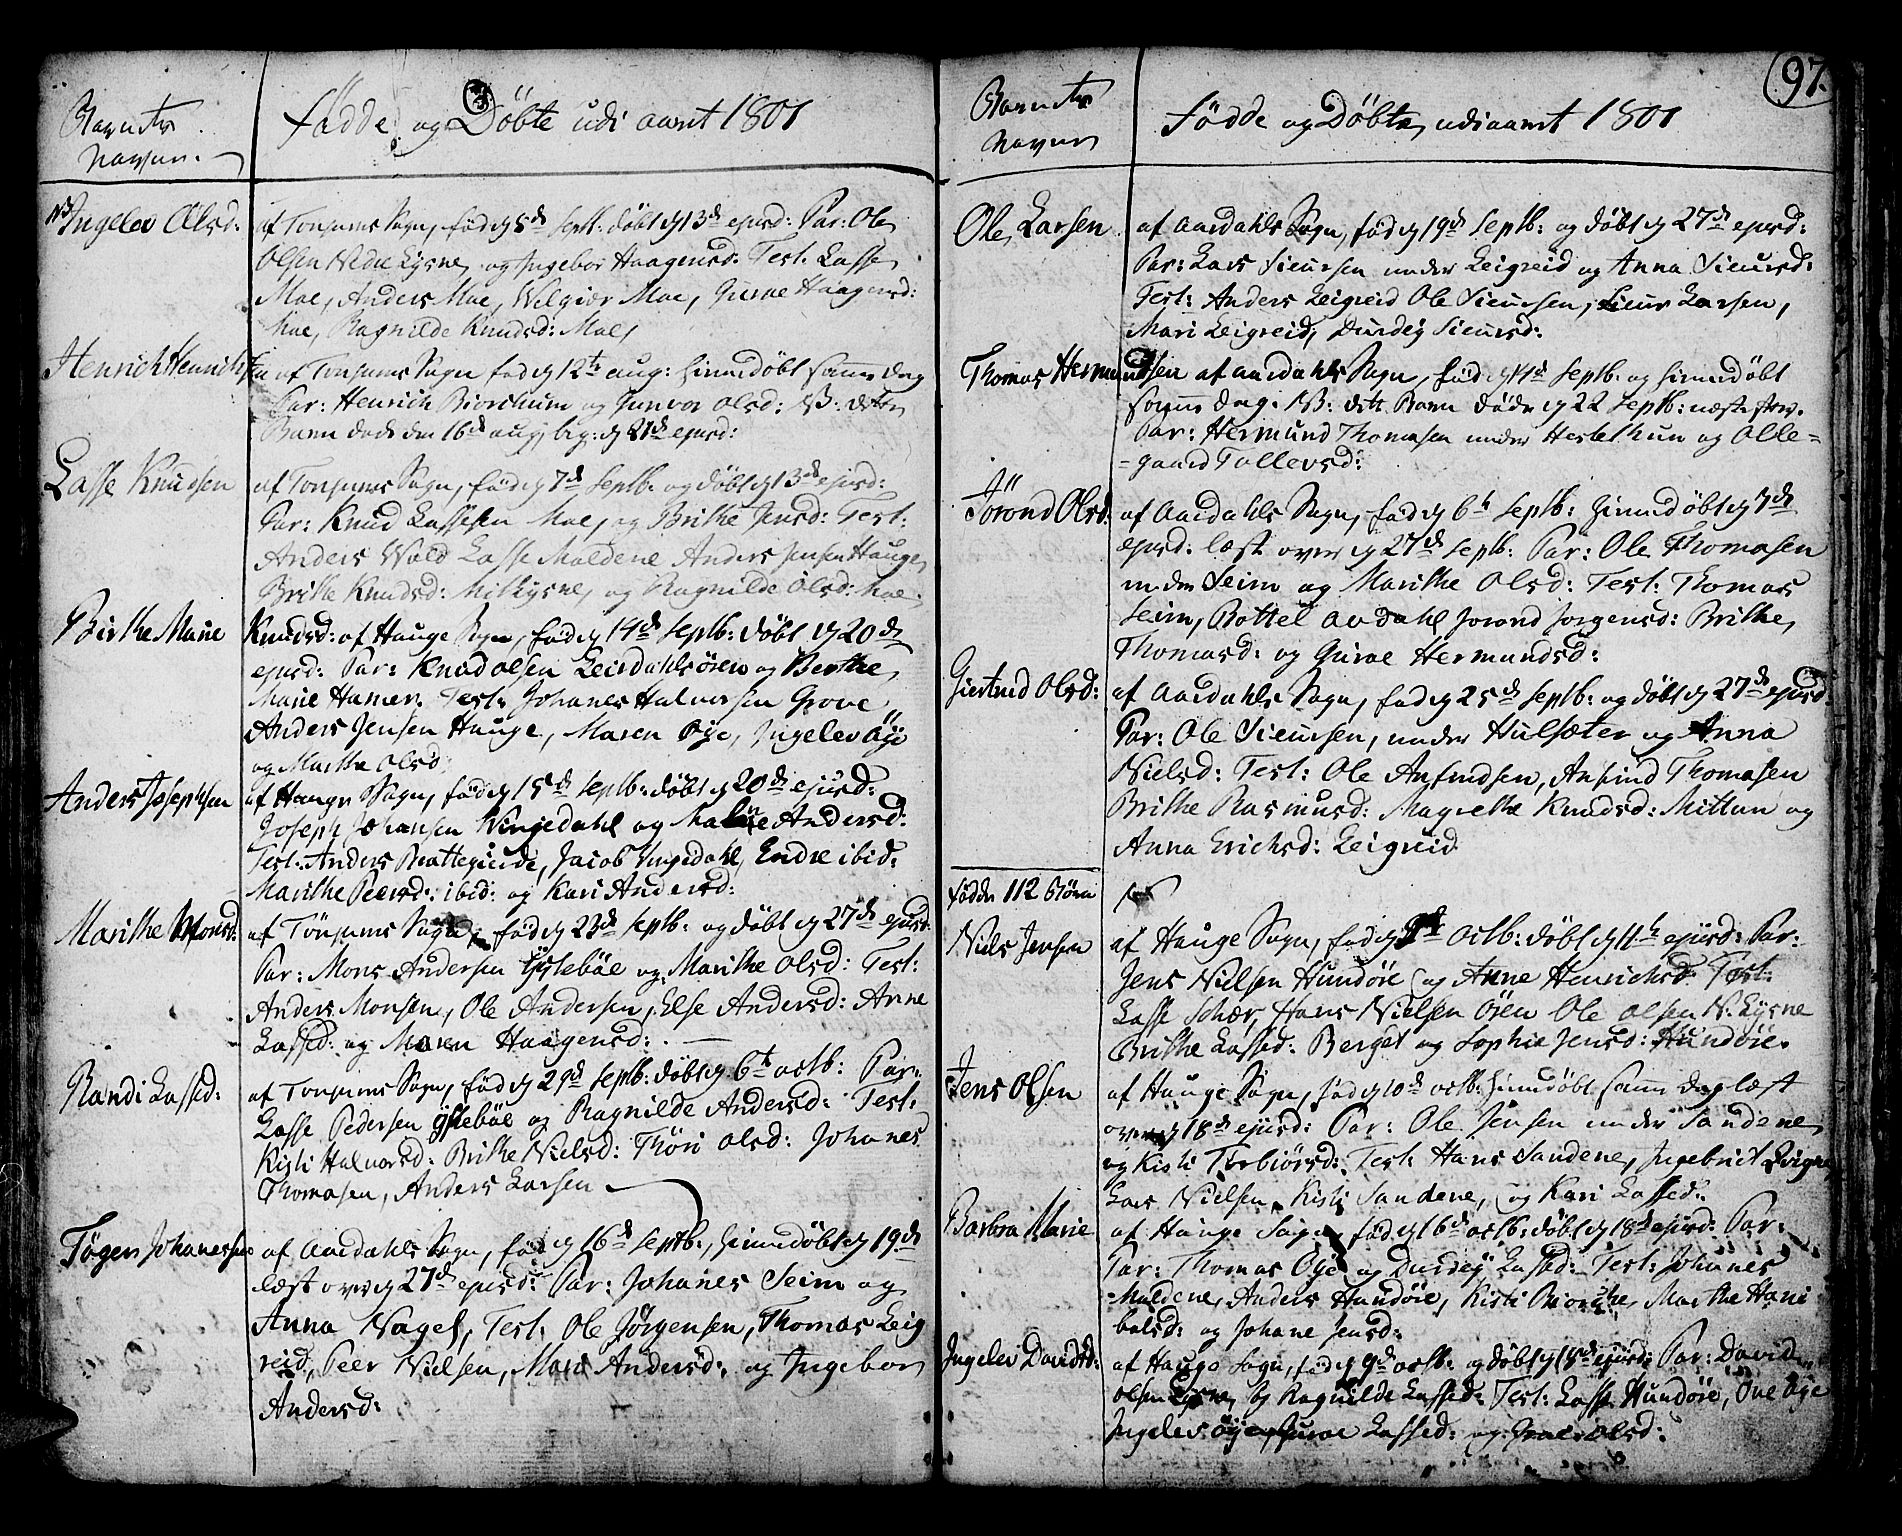 Barnets Navne.
Fødde og Døbte udi aaret 1801
Ingelev Olsd: af Tonjums Sogn, fød d 5d Septb: døbt d 13d ejusd: Par: Ole
Olsen Nedre Lysne og Ingebor Haagensd: Test: Lasse
Moe, Anders Moe, Moe, Guroe Haagensd:
Moe, Ragnilde Knudsd: Moe,
Henrich Henrichsen af Tonjums Sogn fød d 12t aug: hiemdøbt samme dag
Par: Henrich Biorchum og Gunvor Olsd: NB: dette
Barn døde den 16d aug, beg: d 21d ejusd:
Lasse Knudsen af Tonjums Sogn, fød d 7d Septb: og døbt d 13d ejusd:
Par: Knud Lassesen Moe, og Brithe Jensd: Test:
Anders Wold Lasse Moldene Anders Jensen Hauge
Brithe Knudsd: Mitlysne, og Ragnilde Olsd: Moe.
Birthe Marie Knudsd: af Hauge Sogn, fød d 14d Septb: døbt d 20d
ejusd: Par: Knud Olsen Leirdahlsøren og Berthe
Marie Hamer. Test: Johanes Halvorsen Grove
Anders Jensen Hauge, Maren Øye, Ingelev Øye
og Marthe Olsd:
Anders Josephsen af Hauge Sogn, fød d 15d Septb: døbt d 20d ejusd:
Joseph Johansen Vingedahl og Malene Andersd:
Test: Anders Brattegierde, Jacob Vingedahl, Endre ibid:
Marithe Peersd: ibid: og Kari Andersd:
Marithe Monsd: af Tønjums Sogn, fød d 23d Septb: og døbt d 27d ejusd:
Par: Mons Andersen Ystebøe og Marithe Olsd: Test:
Anders Monsen, Ole Andersen, Else Andersd: Anne
Lassed: og Maren Haagensd:
Randi Lassed: af Tonjums Sogn, fød d 29d Septb: døbt d 6t octb: Par:
Lasse Pedersen Ystebøe og Ragnilde Andersd: Test:
Kisti Halvorsd: Brithe Nielsd: Thøri Olsd: Johanes
Thomasen, Anders Larsen
Tøger Johanessen af Aardahls Sogn, fød d 16d Septb:, hiemdøbt d 19d
læst over d 27d ejusd: Par: Johanes Seim og
Anna Nagel, Test: Ole Jørgensen, Thomas Leig
reid, Peer Nielsen, Mari Andersd: og Ingebor
Andersd:
97.
Barnets Navne
Fødde og Døbte udi aaret 1801
Ole Larsen af Aardahls Sogn, fød d 19d Septb: og døbt d 27d ejusd:
Par: Lars Sieursen under Leigreid og Anna Sieursd:
Test: Anders Leigreid Ole Sieursen, Sieur Larsen,
Mari Leigreid, Durdey Sieursd:
Thomas Hermundsen af Aardahls Sogn, fød d 14d Septb: og hiemdøbt
samme dag. NB: dette Barn døde d 22 Septb: næstefter.
Par: Hermund Thomasen under Hestethun og Olle=
=gaard Tollevsd:
Jørond Olsd: af Aardahls Sogn, fød d 6t Septb: hiemdøbt d 7d
ejusd: læst over d 27d Septb: Par: Ole Thomasen
under Seim og Marithe Olsd: Test: Thomas
Seim, Bottel Avdahl Jorond Jorgensd: Brithe
Thomasd: og Guroe Hermundsd:
Giertrud Olsd: af Aardahls Sogn, fød d 25d Septb: og døbt d 27d ejusd:
Par: Ole Sieursen, under Hulsæter og Anna
Nielsd: Test: Ole Anfindsen, Anfind Thomasen
Brithe Rasmusd: Magrethe Knudsd: Mittun og
Anna Erichsd: Leigreid
fødde 112 Børn
Niels Jensen af Hauge Sogn, fød d octb: døbt d 11t ejusd: Par:
Jens Nielsen Hundøie og Anne Henrichsd: Test:
Lasse Schær, Hans Nielsen Øien Ole Olsen N: Lysne
Brithe Lassed: Berget og Sophie Jensd: Hundøie.
Jens Olsen af Hauge Sogn, fød d 10d octb: hiemdøbt samme dag læst
over d 18d ejusd: Par: Ole Jensen under Sandene
og Kisti Torbiørsd: Test: Hans Sandene, Ingebrict Qvigne
Lars Nielsen, Kisti Sandene, og Kari Lassed:
Barbra Marie af Hauge Sogn fød d 16d octb: døbt d 18d ejusd: Par:
Par: Thomas Øye og Durdej Lassed: Test: Johanes
Moldene, Anders Hundøie, Kisti Marthe Hani
balsd: og Johane Jensd:
Ingelev Davidsd: af Hauge Sogn, fød d 9d octb: og døbt d 18d ejusd: Par: David
Olsen Lysne og Ragnilde Lassed: Test: Lasse Hundøie, One Øye
Ingelev Øye, Guroe Lassed: og Olsd: